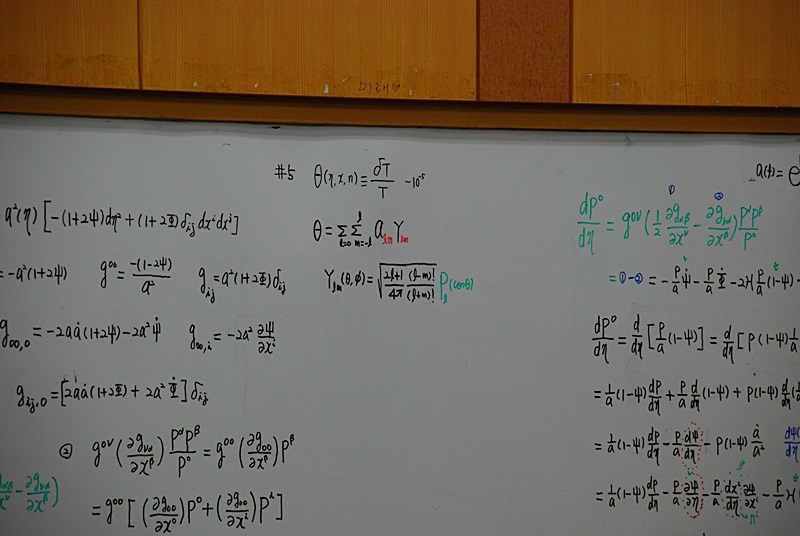 #5 θ(η,x,n) ≡ δT/T ~10⁻⁵
θ = Σ_{l≥0} Σ_{m=-l}^{l} a_{lm} Y_{lm}
Y_{lm}(θ,φ) = √(2l+1/4π (l-m)!/(l+m)!) P_l(cosθ)
a²(η) [-(1+2ψ)dη² + (1+2Φ)δ_ij dxⁱdxʲ]
= -a²(1+2ψ) g⁰⁰ = -(1-2ψ)/a² g_ij = a²(1+2Φ)δ_ij
g_{00,0} = -2aȧ(1+2ψ) - 2a²ψ̇ g_{00,i} = -2a² ∂ψ/∂xⁱ
g_{ij,0} = [2aȧ(1+2Φ) + 2a²Φ̇] δ_ij
② g^{0ν} (∂g_{να}/∂x^β) P^αP^β/P⁰ = g⁰⁰ (∂g_{00}/∂x^β) P^β
= g⁰⁰ [(∂g_{00}/∂x⁰) P⁰ + (∂g_{00}/∂xⁱ) Pⁱ]
a(t) = e
① ②
dP⁰/dη = g^{0ν} (1/2 ∂g_{αβ}/∂x^ν - ∂g_{να}/∂x^β) P^αP^β/P⁰
= ①-② = -P/a ψ̇ - P/a Φ̇ - 2H P/a (1-ψ) -
dP⁰/dη = d/dη [P/a (1-ψ)] = d/dη [P(1-ψ) 1/a
= 1/a (1-ψ) dP/dη + P/a d/dη (1-ψ) + P(1-ψ) d/dη (1/a
= 1/a (1-ψ) dP/dη - P/a dψ/dη - P(1-ψ) ȧ/a² dψ/dη
= 1/a (1-ψ) dP/dη - P/a ∂ψ/∂η - P/a dxⁱ/dη ∂ψ/∂xⁱ - P/a H(